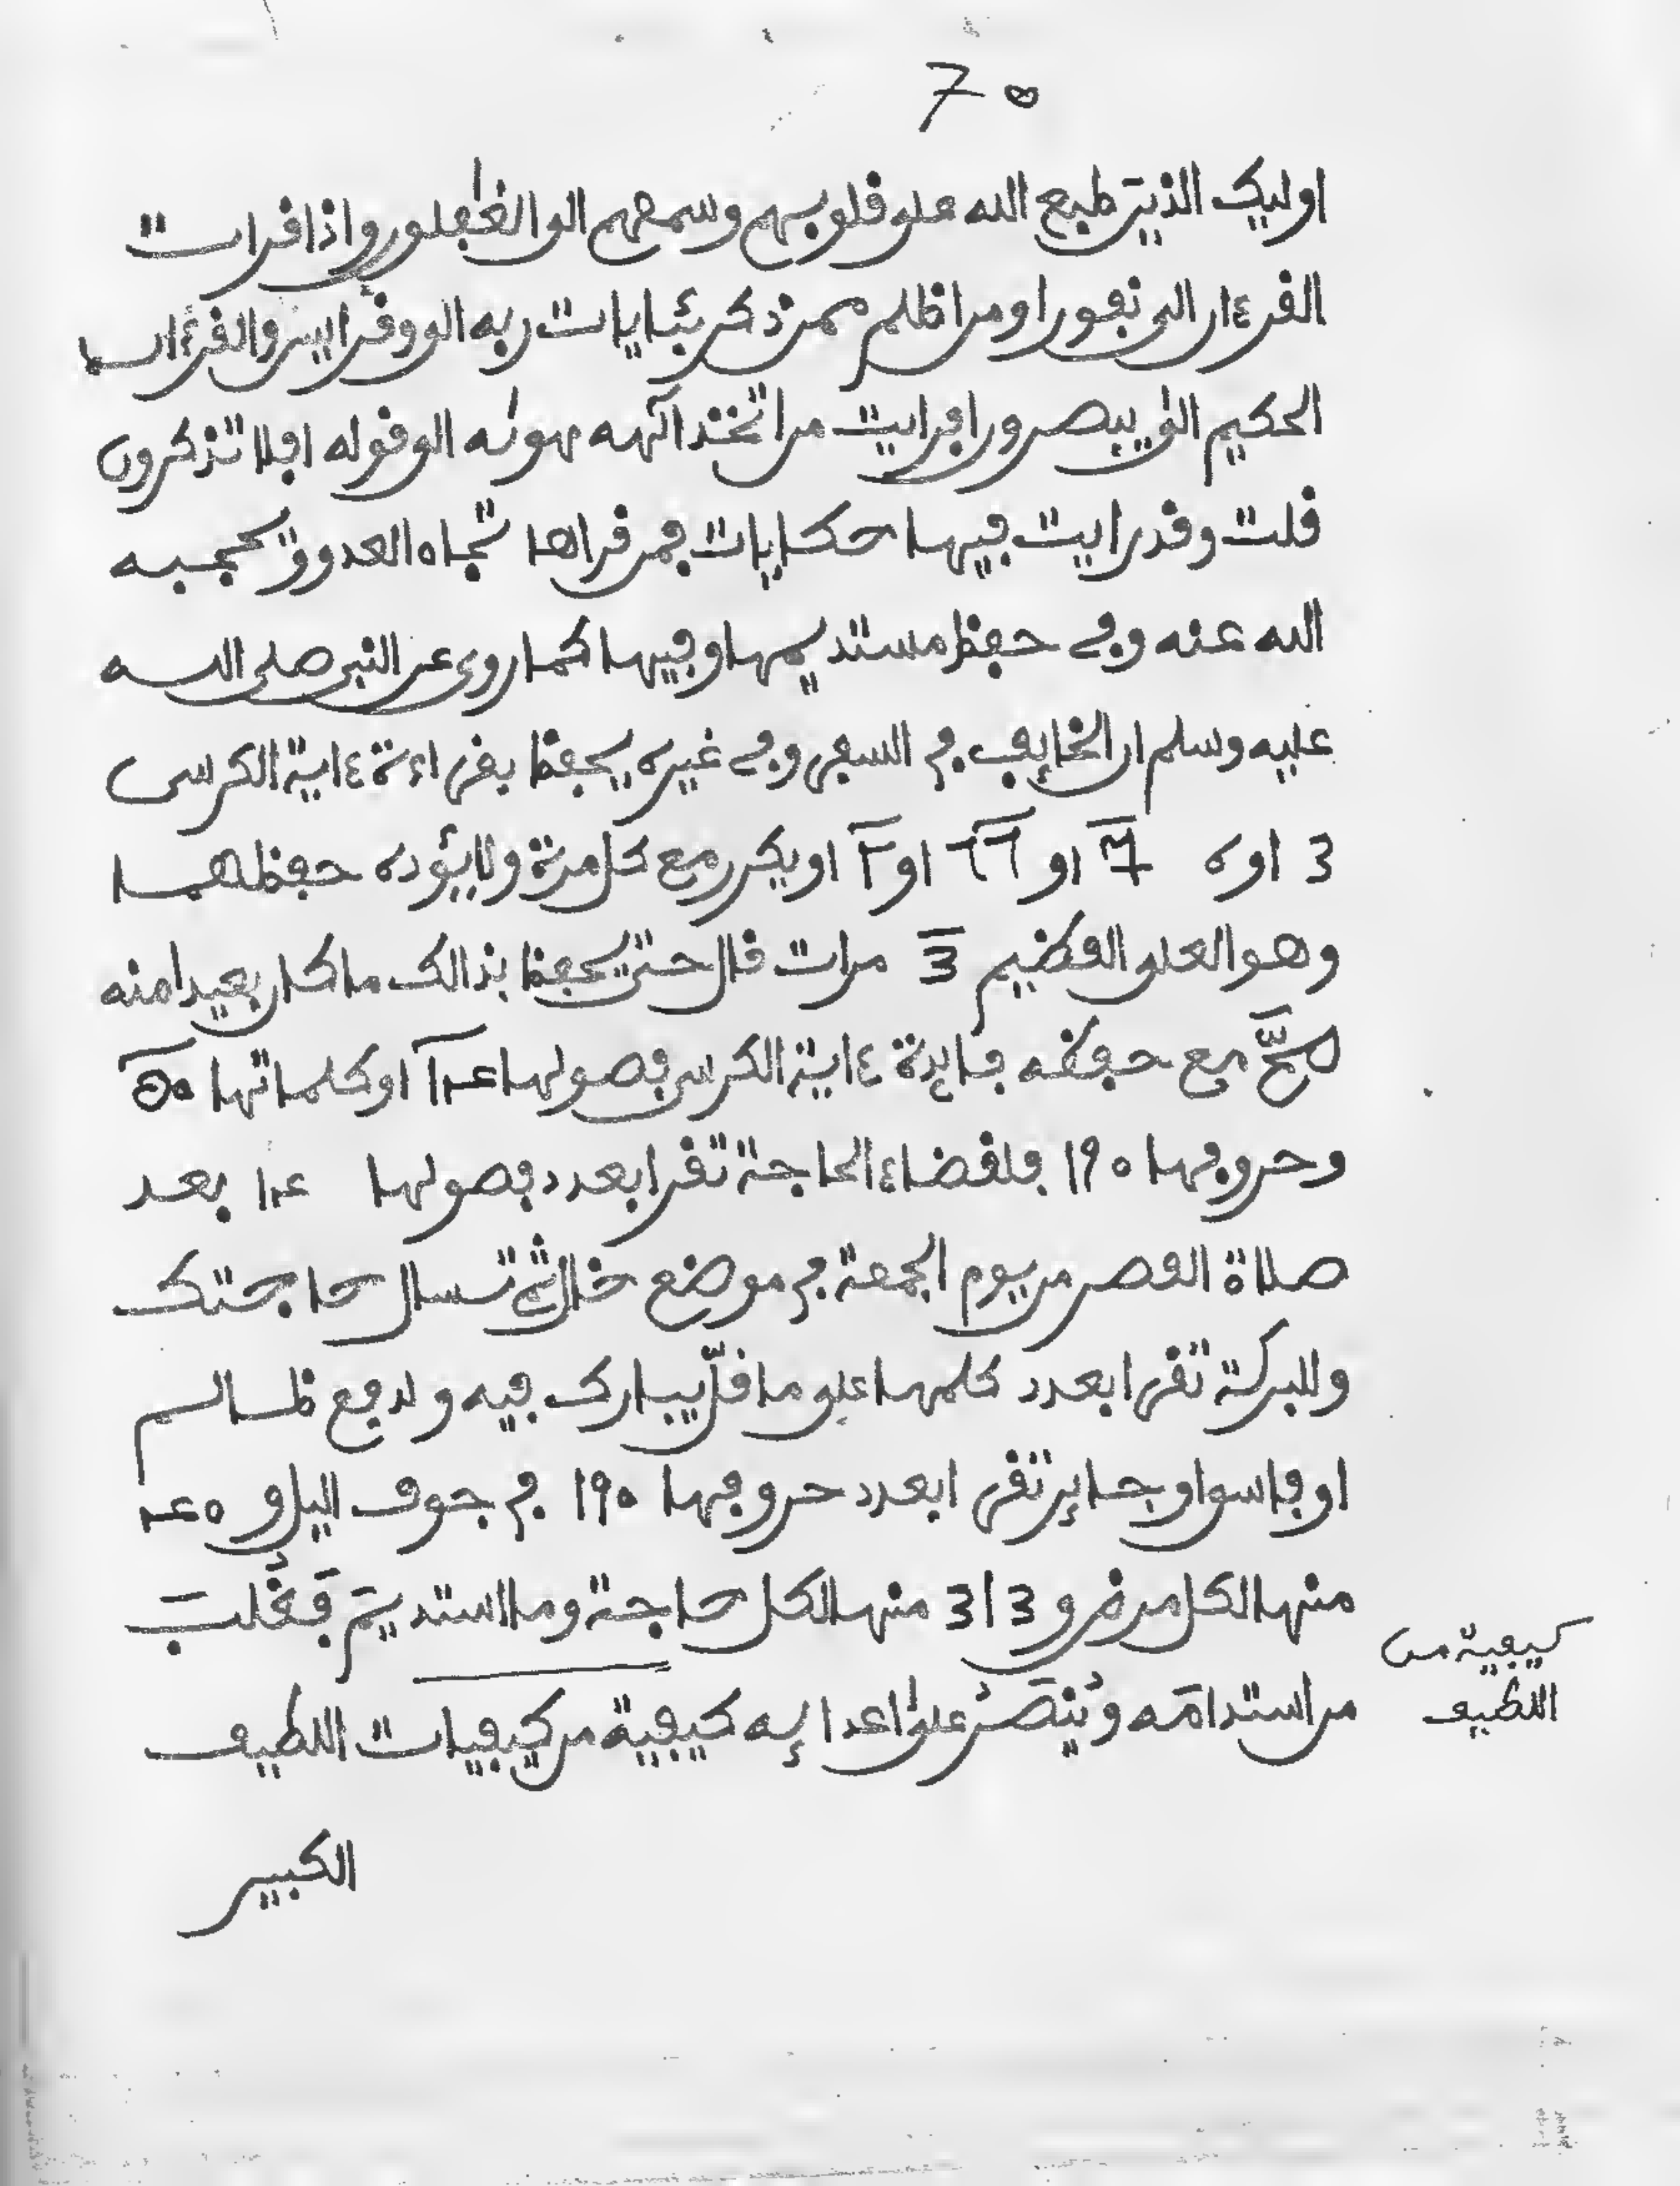 70
اوليك الذين طبع الله على قلوبهم وسمعهم الى الغٰفلون واذا قرات
القرءان الى نفورا ومن اظلم ممن ذكر بئايات ربه الى وقرا يس والقرءان
الحكيم الى يبصرون افرايت من اتخذ الهه هوىه الى قوله افلا تذكرون
قلت وقد رايت فيها حكايات فمن قراها تجاه العدو يحجبه
الله عنه وفى حفظ مستديمها وفيها كما روى عن النبى صلى الله
عليه وسلم ان الخايف فى السفر وفى غيره يحفظ بقراءة ءاية الكرسى
3 او 7 او او او يكرر مع كل مرة ولا يئوده حفظهما
وهو العلى العظيم 3 مرات قال حتى يحفظ بذالك ما كان بعيدا منه
صحّ مع حفظه فايدة ءاية الكرسى فصولها او كلماتها ٥٠
وحروفها ١٩٠ فلقضاء الحاجة تقرا بعدد فصولها بعد
صلاة العصر من يوم الجمعة فى موضع خال ثم تسال حاجتك
وللبركة تقرا بعدد كلمها على ما قلّ يبارك فيه ولدفع ظالم
او فاس او جاير تقرا بعدد حروفها ١٩٠ فى جوف اليل و
منها لكل مرض و 313 منها لكل حاجة وما استديم فَغُلبَ
من استدامه ويُنتصَرُ على اعدايه كيفية من كيفيات اللطيف
كيفية من
اللطيف
الكبير